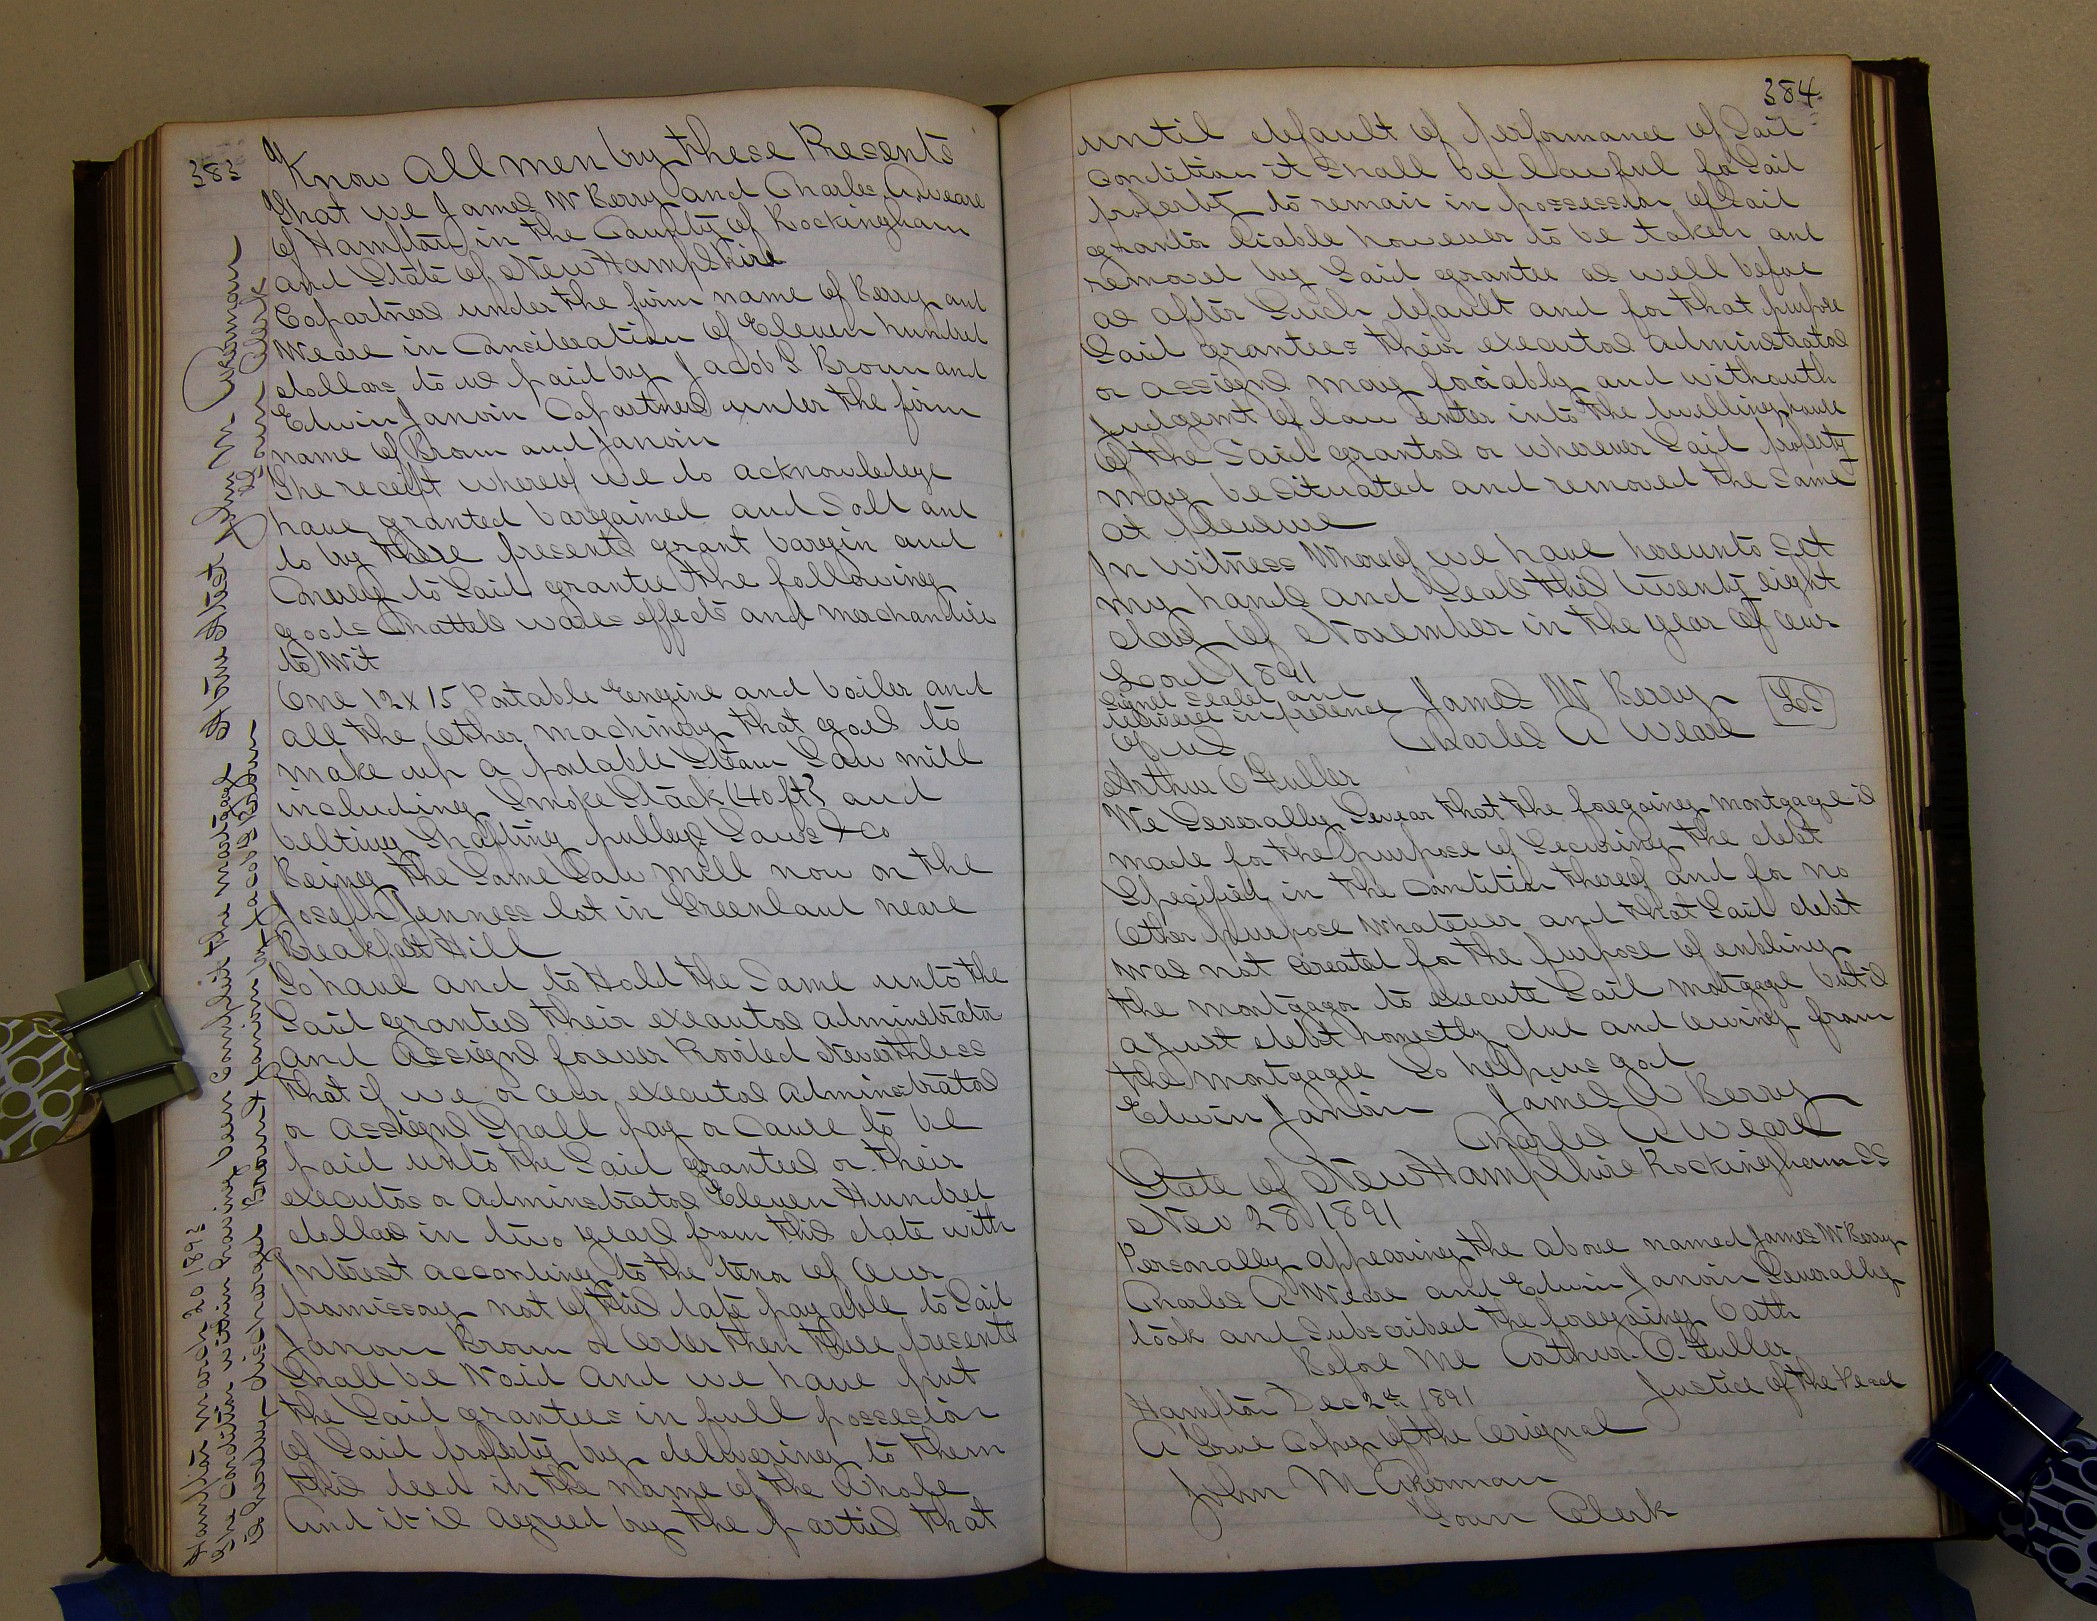 383
Know all men by these Presents
That we James W Berry and Charles A Weare
of Hampton in the County of Rockingham
and State of New Hampshire
Copartners under the firm name of Berry and
Weare in Consideration of Eleven hundred
dollars to us paid by Jacob S Brown and
Edwin Janvrin Copartners under the firm
name of Brown and Janvrin
The receipt whereof we do acknowledge
have granted bargained and Sold and
do by these presents grant bargin and
Convey to Said grantee the following
goods Chattels wares effects and merchandise
to Wit
One 12 x 15 Portable Engine and boiler and
all the Other machinery that goes to
make up a portable Steam Saw mill
including Smoke Stack (40 ft) and
belting Shafting pulleys Saws & Co
Being the Same Saw mill now on the
Joseph Jenness lot in Greenland neare
Breakfast Hill
To have and to Hold the Same unto the
Said grantees their executos adminstrators
and Assigns forever Provided Neverthless
that if we or our executos adminstrators
or assigns Shall pay or Cause to be
paid unto the Said grantees or their
executos or adminstrators Eleven Hundred
dollars in two years from this date with
Interest according to the tenor of Our
promissory not of this date payable to Said
Janvrin Brown or Order then these presents
Shall be Void And we have put
the Said grantees in full possession
of Said property by delivering to them
this deed in the name of the Whole
And it is agreed by the parties that
Hampton march 20 1893
The Condition within having been Complied the mortgage
is hereby discharged Brown & Janvrin by Jacob S Brown
A true Attest John M Akerman
Town Clerk
384
until default of performance of Said
condition it Shall be lawful for Said
property to remain in possession of Said
grantor liable however to be taken and
removed by Said grantee as well before
as after Such default and for that purpose
Said grantees their executos adminstrators
or assigns may forciably and withouth
Judgemt of law enter into the dwelling house
Of the Said grantos or wherever Said property
may be situated and removed the Same
at pleasure
In witness Whereof we have hereunto Set
my hands and Seals this twenty eight
day of November in the year of our
Lord 1891
Signed Sealed and
delivered in presence
of us
James W Berry
Charles A Weare
LS
Arthur O Fuller
We Severally Swear that the foregoing mortgage is
made for the purpose of Securing the debt
Specified in the Condition thereof and for no
Other purpose Whatever and that Said debt
was not Created for the purpose of enabling
the mortgagor to execute Said mortgage but is
a Just debt honestly due and owing from
the mortgagee So help us god
Edwin Janvrin James W Berry
Charles A Weare
State of New Hampshire Rockingham SS
Nov 28 1891
Personally appearing the above named James W Berry
Charles A Weare and Edwin Janvrin Severally
took and Subscribed the foregoing Oath
Before Me Arthur O. Fuller
Justice of the Peace
Hampton Dec 2nd 1891
A True Copy of the Orignal
John M Akerman
Town Clerk